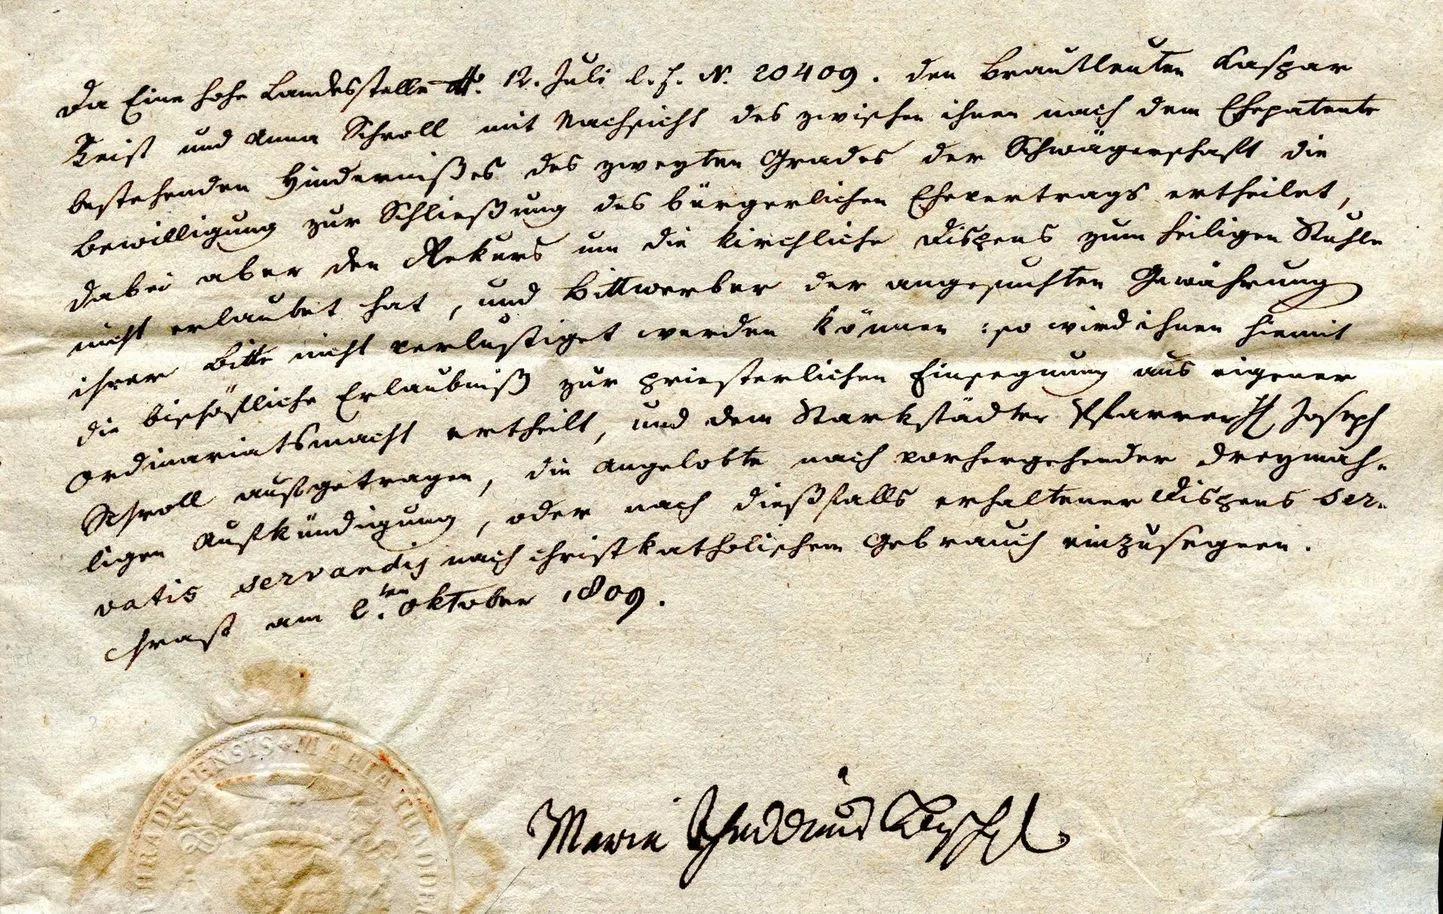 Da Eine hohe Landesstelle dto. 12. Juli l. J. N. 20409. den Brautleuten Kaspar
Teist und Anna Schroll mit Nachsicht des zwischen ihnen nach dem Ehepatente
bestehenden Hindernißes des zweyten Grades der Schwägerschaft die
Bewilligung zur Schließung des bürgerlichen Ehevertrags ertheilet,
dabei aber den Rekurs um die kirchliche Dispens zum heiligen Stuhle
nicht erlaubet hat, und Bittwerber der angesuchten Gewährung
ihrer Bitte nicht verlustiget werden können: so wird ihnen hiemit
die bischöfliche Erlaubniß zur priesterlichen Einsegnung aus eigener
Ordinariatsmacht ertheilt, und dem Starkstädter Pfarrer H Joseph
Schroll aufgetragen, die Angelobte nach vorhergehender dreymah-
ligen Aufkündigung, oder nach dießfalls erhaltener Dispens ser-
vatis servandis nach christkatholischem Gebrauch einzusegnen.
Chrast am 2.ten Oktober 1809.
HRADECENSIS MARIA THADD
Maria Thaddäus Bischof